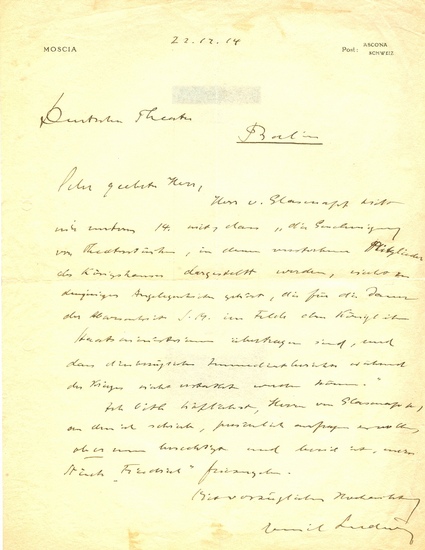 MOSCIA
22.12.14
Post: ASCONA
SCHWEIZ
Deutsches Theater
Berlin
Sehr geehrter Herr,
Herr v. Glasenapp teilt
mir unterm 14. mit, dass "die Genehmigung
von Theaterstücken, in denen verstorbene Mitglieder
des Königshauses dargestellt werden, nicht zu
denjenigen Angelegenheiten gehört, die für die Dauer
der Abwesenheit S. M. im Felde dem Königlichen
Staatsministerium übertragen sind, und
dass diesbezügliche Immediatberichte während
des Krieges nicht erstattet werden können."
Ich bitte höflichst, Herrn von Glasenapp,
an den ich schrieb, persönlich anfragen zu wollen,
ob er nun berechtigt und bereit ist, mein
Stück "Friedrich" freizugeben.
Mit vorzüglicher Hochachtung
Emil Ludwig